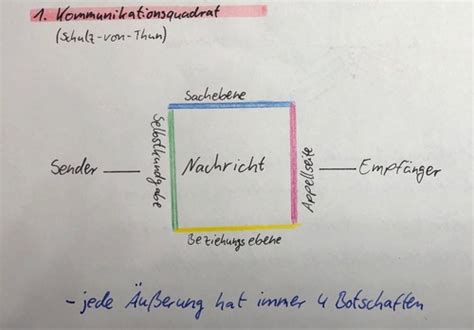 1. Kommunikationsquadrat
(Schulz-von-Thun)
Sachebene
Sender
Selbstkundgabe
Nachricht
Appellseite
Empfänger
Beziehungsebene
- jede Äußerung hat immer 4 Botschaften